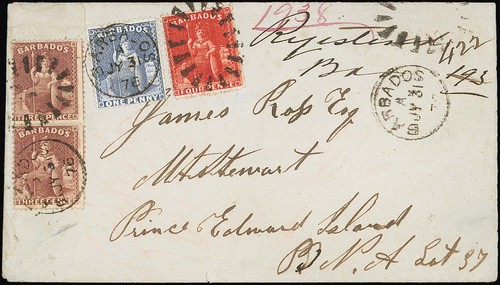 BARBADOS
THREE PENCE
BARBADOS
THREE PENCE
BARBADOS
ONE PENNY
BARBADOS
FOUR PENCE
1938
Registered
422
193
BARBADOS
A
JY 31
James Ross Esq
Mt Stewart
Prince Edward Island
B. N. A Lot 37